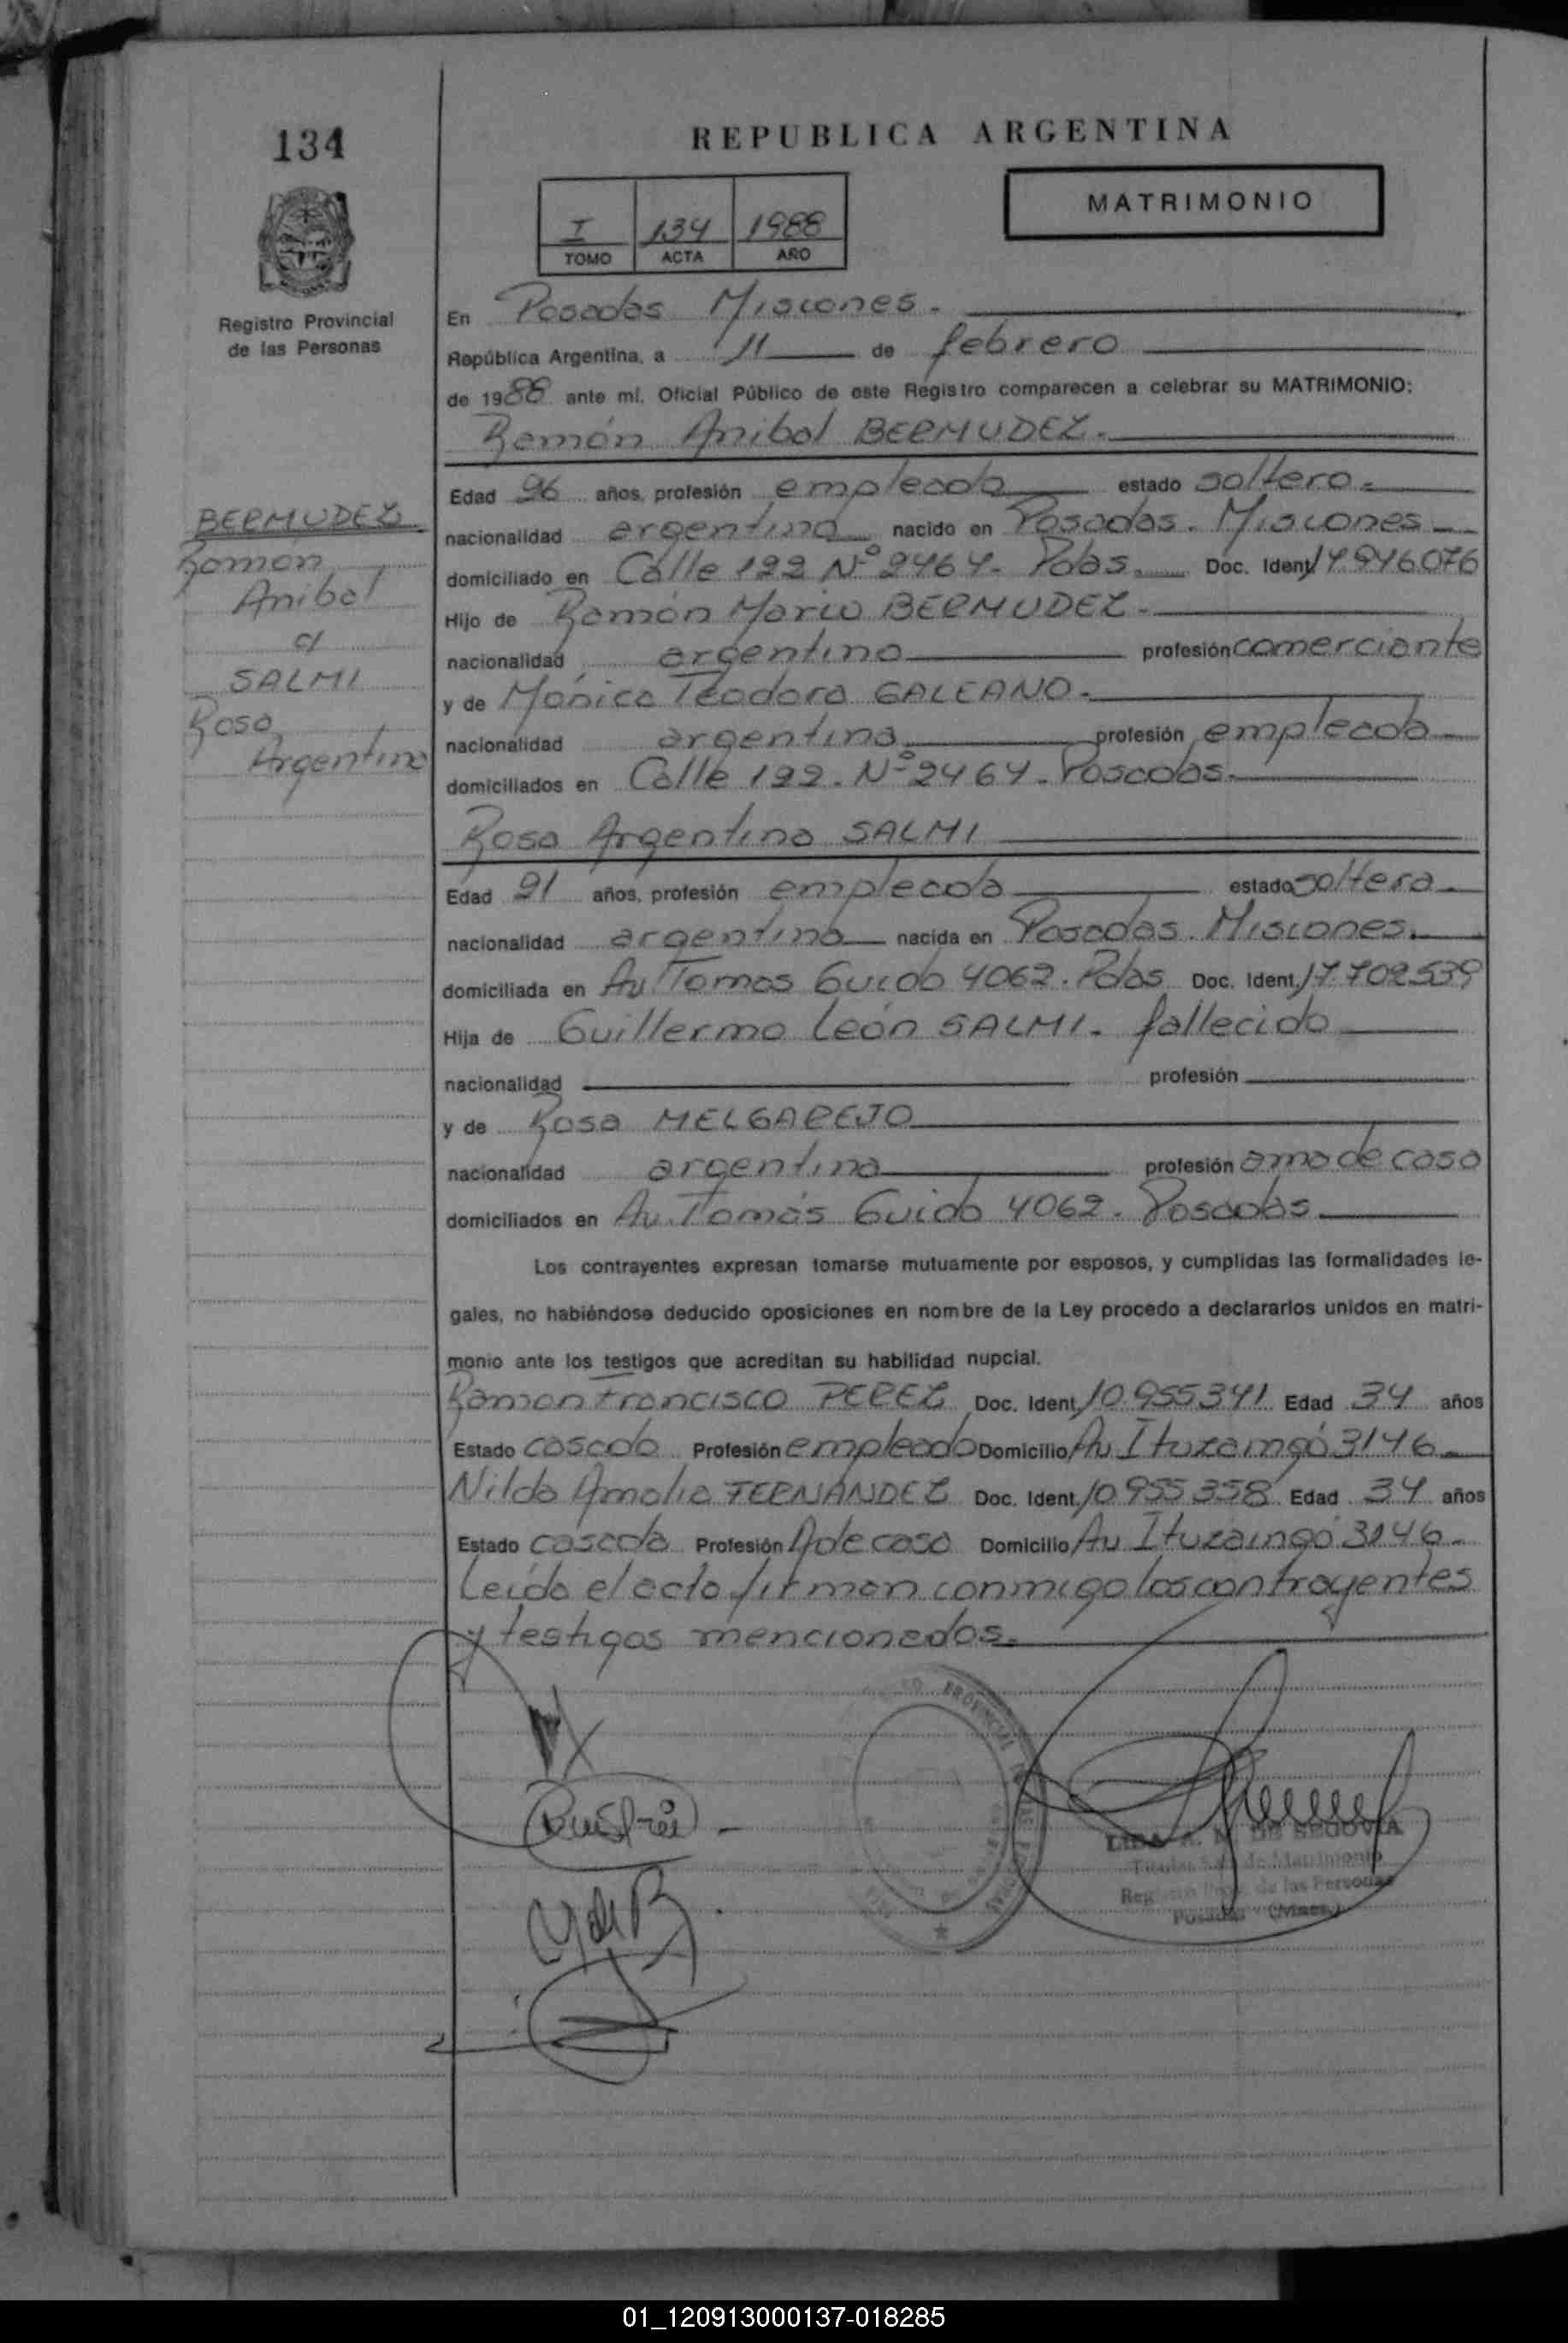 134
REPUBLICA ARGENTINA
MATRIMONIO
I 134 1988
TOMO ACTA AÑO
Registro Provincial
de las Personas
En Posadas Misiones.
República Argentina, a 11 de febrero
de 1988 ante mí, Oficial Público de este Registro comparecen a celebrar su MATRIMONIO:
Ramón Anibal BERMUDEZ.
BERMUDEZ
Ramón
Anibal
c/
SALMI
Rosa
Argentina
Edad 26 años, profesión empleado estado soltero.
nacionalidad argentina nacido en Posadas. Misiones
domiciliado en Calle 122 Nº 2464. Pdas. Doc. Ident.
Hijo de Ramón Mario BERMUDEZ.
nacionalidad argentino profesión comerciante
y de Mónica Teodora GALEANO.
nacionalidad argentina profesión empleada
domiciliados en Calle 122. Nº 2464. Posadas.
Rosa Argentina SALMI
Edad 21 años, profesión empleada estado soltera.
nacionalidad argentina nacida en Posadas. Misiones.
domiciliada en Av. Tomas Guido 4062. Pdas Doc. Ident. 17.702.539
Hija de Guillermo León SALMI. fallecido
nacionalidad profesión
y de Rosa MELGAREJO
nacionalidad argentina profesión ama de casa
domiciliados en Av. Tomás Guido 4062. Posadas
Los contrayentes expresan tomarse mutuamente por esposos, y cumplidas las formalidades le-
gales, no habiéndose deducido oposiciones en nombre de la Ley procedo a declararlos unidos en matri-
monio ante los testigos que acreditan su habilidad nupcial.
Ramon Francisco PEREZ Doc. Ident. 10.955341 Edad 34 años
Estado casado Profesión empleado Domicilio Av Ituzaingó 3146
Nilda Amalia FERNANDEZ Doc. Ident. 10.955358 Edad 34 años
Estado casada Profesión A de casa Domicilio Av Ituzaingó 3146.
Leída el acta firman conmigo los contrayentes
y testigos mencionados.
PROVINCIAL
A. DE SEGOVIA
de Matrimonio
de las Personas
Posadas (Mnes.)
01_120913000137-018285